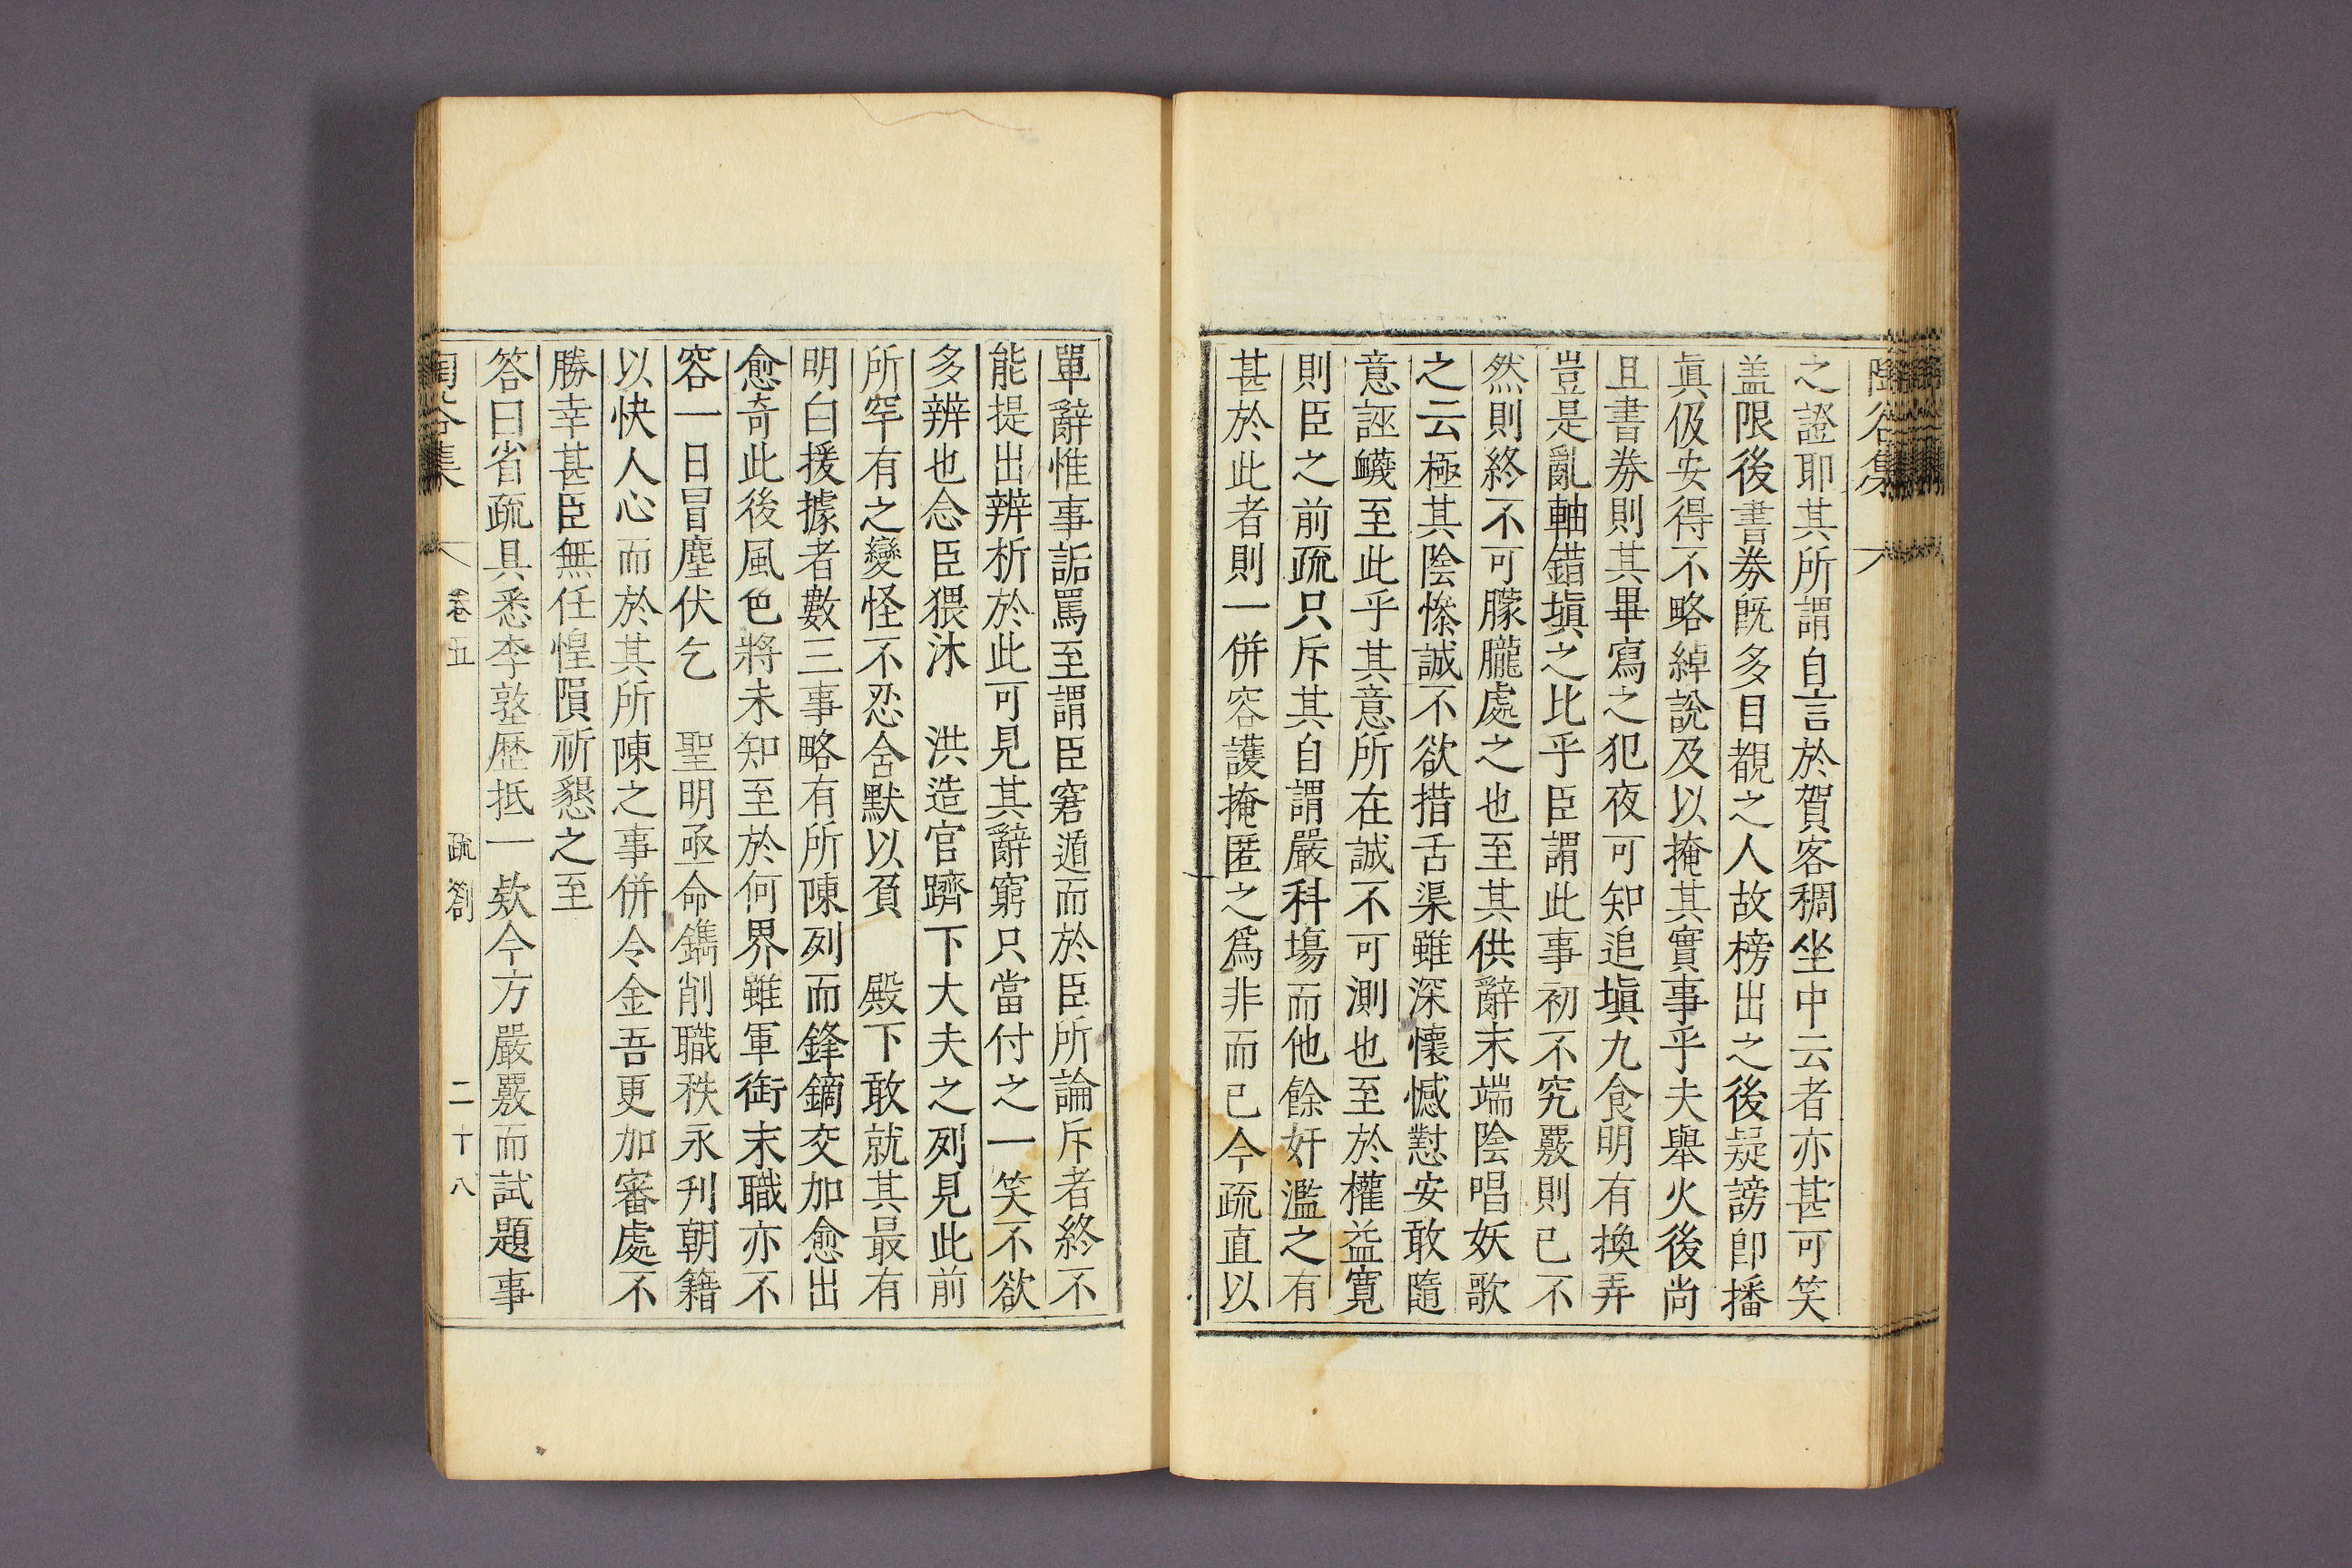 之證耶其所謂自言於賀客稠坐中云者亦甚可笑
盖限後書券旣多日覩之人故榜出之後疑謗卽播
眞伋安得不略綽說及以掩其實事乎夫舉火後尚
且書券則其畢寫之犯夜可知追塡九食明有換弄
豈是亂軸錯塡之比乎臣謂此事初不究覈則已不
然則終不可朦朧處之也至其供辭末端陰唱妖歌
之云極其陰慘誠不欲措舌渠雖深懷憾懟安敢隨
意誣衊至此乎其意所在誠不可測也至於權益寬
則臣之前疏只斥其自謂嚴科塲而他餘奸濫之有
甚於此者則一併容護掩匿之爲非而已今疏直以
單辭惟事詬罵至謂臣窘遁而於臣所論斥者終不
能提出辨析於此可見其辭窮只當付之一笑不欲
多辨也念臣猥沐　洪造官躋下大夫之列見此前
所罕有之變怪不忍含默以負　殿下敢就其最有
明白援據者數三事略有所陳列而鋒鏑交加愈出
愈奇此後風色將未知至於何界雖軍銜末職亦不
容一日冒塵伏乞　聖明亟命鐫削職秩永刋朝籍
以快人心而於其所陳之事併令金吾更加審處不
勝幸甚臣無任惶隕祈懇之至
答曰省疏具悉李墪歷抵一款今方嚴覈而試題事
陶谷集　卷五　疏劄　二十八